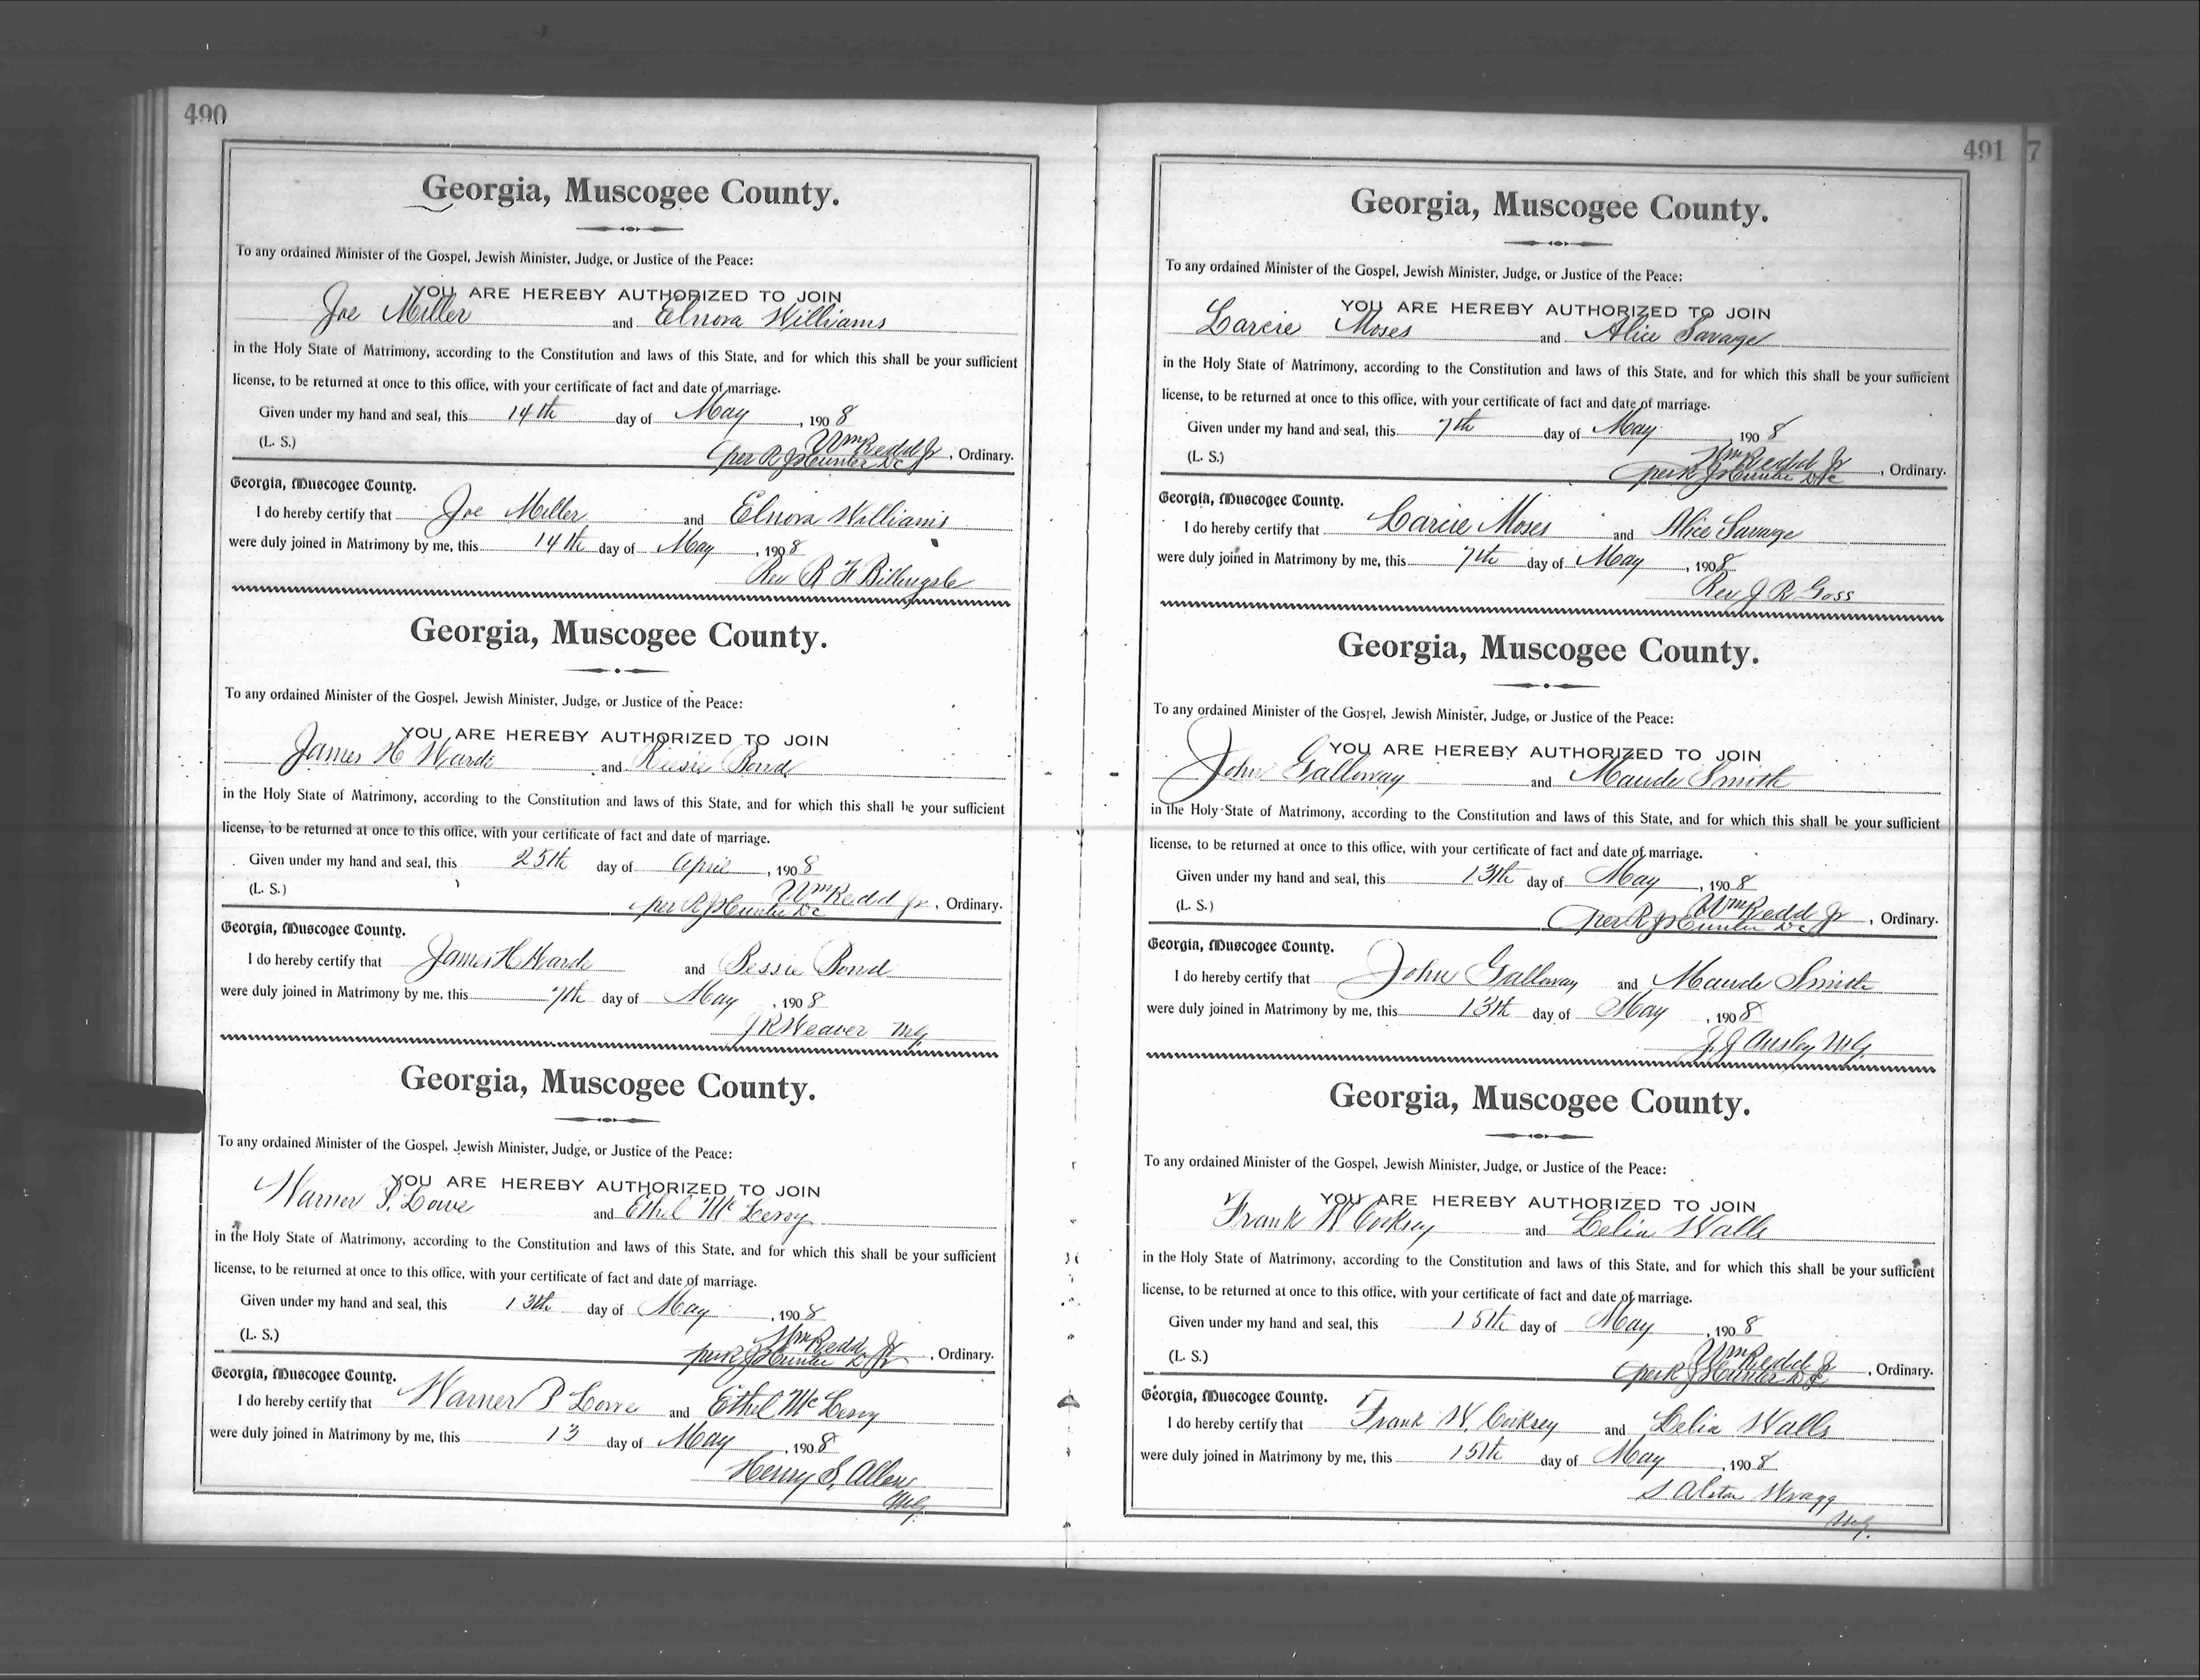 490
Georgia, Muscogee County.
To any ordained Minister of the Gospel, Jewish Minister, Judge, or Justice of the Peace:
YOU ARE HEREBY AUTHORIZED TO JOIN
Joe Miller and Elnora Williams
in the Holy State of Matrimony, according to the Constitution and laws of this State, and for which this shall be your sufficient
license, to be returned at once to this office, with your certificate of fact and date of marriage.
Given under my hand and seal, this 14th day of May, 1908
Wm Redd Jr
(L. S.) per R J Hunter DC, Ordinary.
Georgia, Muscogee County.
I do hereby certify that Joe Miller and Elnora Williams
were duly joined in Matrimony by me, this 14th day of May, 1908
Rev R H Billingsle
Georgia, Muscogee County.
To any ordained Minister of the Gospel, Jewish Minister, Judge, or Justice of the Peace:
YOU ARE HEREBY AUTHORIZED TO JOIN
James H Warde and Bond
in the Holy State of Matrimony, according to the Constitution and laws of this State, and for which this shall be your sufficient
license, to be returned at once to this office, with your certificate of fact and date of marriage.
Given under my hand and seal, this 25th day of April, 1908
Wm Redd Jr
(L. S.) per R J Hunter DC, Ordinary.
Georgia, Muscogee County.
I do hereby certify that James H Warde and Bessie Bond
were duly joined in Matrimony by me, this 7th day of May, 1908
J R Weaver MG.
Georgia, Muscogee County.
To any ordained Minister of the Gospel, Jewish Minister, Judge, or Justice of the Peace:
YOU ARE HEREBY AUTHORIZED TO JOIN
Warner P. Lowe and Ethel Mc Leroy
in the Holy State of Matrimony, according to the Constitution and laws of this State, and for which this shall be your sufficient
license, to be returned at once to this office, with your certificate of fact and date of marriage.
Given under my hand and seal, this 13th day of May, 1908
Wm Redd Jr
(L. S.) per R J Hunter, Ordinary.
Georgia, Muscogee County.
I do hereby certify that Warner P Lowe and Ethel Mc Leroy
were duly joined in Matrimony by me, this 13 day of May, 1908
Henry S. Allen
MG.
491 7
Georgia, Muscogee County.
To any ordained Minister of the Gospel, Jewish Minister, Judge, or Justice of the Peace:
YOU ARE HEREBY AUTHORIZED TO JOIN
Larcie Moses and Alice Savage
in the Holy State of Matrimony, according to the Constitution and laws of this State, and for which this shall be your sufficient
license, to be returned at once to this office, with your certificate of fact and date of marriage.
Given under my hand and seal, this 7th day of May, 1908
Wm Redd Jr
(L. S.) per R J Hunter DC, Ordinary.
Georgia, Muscogee County.
I do hereby certify that Larcie Moses and Alice Savage
were duly joined in Matrimony by me, this 7th day of May, 1908
Rev J R Goss
Georgia, Muscogee County.
To any ordained Minister of the Gospel, Jewish Minister, Judge, or Justice of the Peace:
YOU ARE HEREBY AUTHORIZED TO JOIN
John Galloway and Maude Smith
in the Holy State of Matrimony, according to the Constitution and laws of this State, and for which this shall be your sufficient
license, to be returned at once to this office, with your certificate of fact and date of marriage.
Given under my hand and seal, this 13th day of May, 1908
Wm Redd Jr
(L. S.) per R J Hunter DC, Ordinary.
Georgia, Muscogee County.
I do hereby certify that John Galloway and Maude Smith
were duly joined in Matrimony by me, this 13th day of May, 1908
J. J Ansley MG.
Georgia, Muscogee County.
To any ordained Minister of the Gospel, Jewish Minister, Judge, or Justice of the Peace:
YOU ARE HEREBY AUTHORIZED TO JOIN
Frank W Cooksey and Lelia Walls
in the Holy State of Matrimony, according to the Constitution and laws of this State, and for which this shall be your sufficient
license, to be returned at once to this office, with your certificate of fact and date of marriage.
Given under my hand and seal, this 15th day of May, 1908
Wm Redd Jr
(L. S.) per R J Hunter DC, Ordinary.
Georgia, Muscogee County.
I do hereby certify that Frank W. Cooksey and Lelia Walls
were duly joined in Matrimony by me, this 15th day of May, 1908
S Alston Wragg
MG.